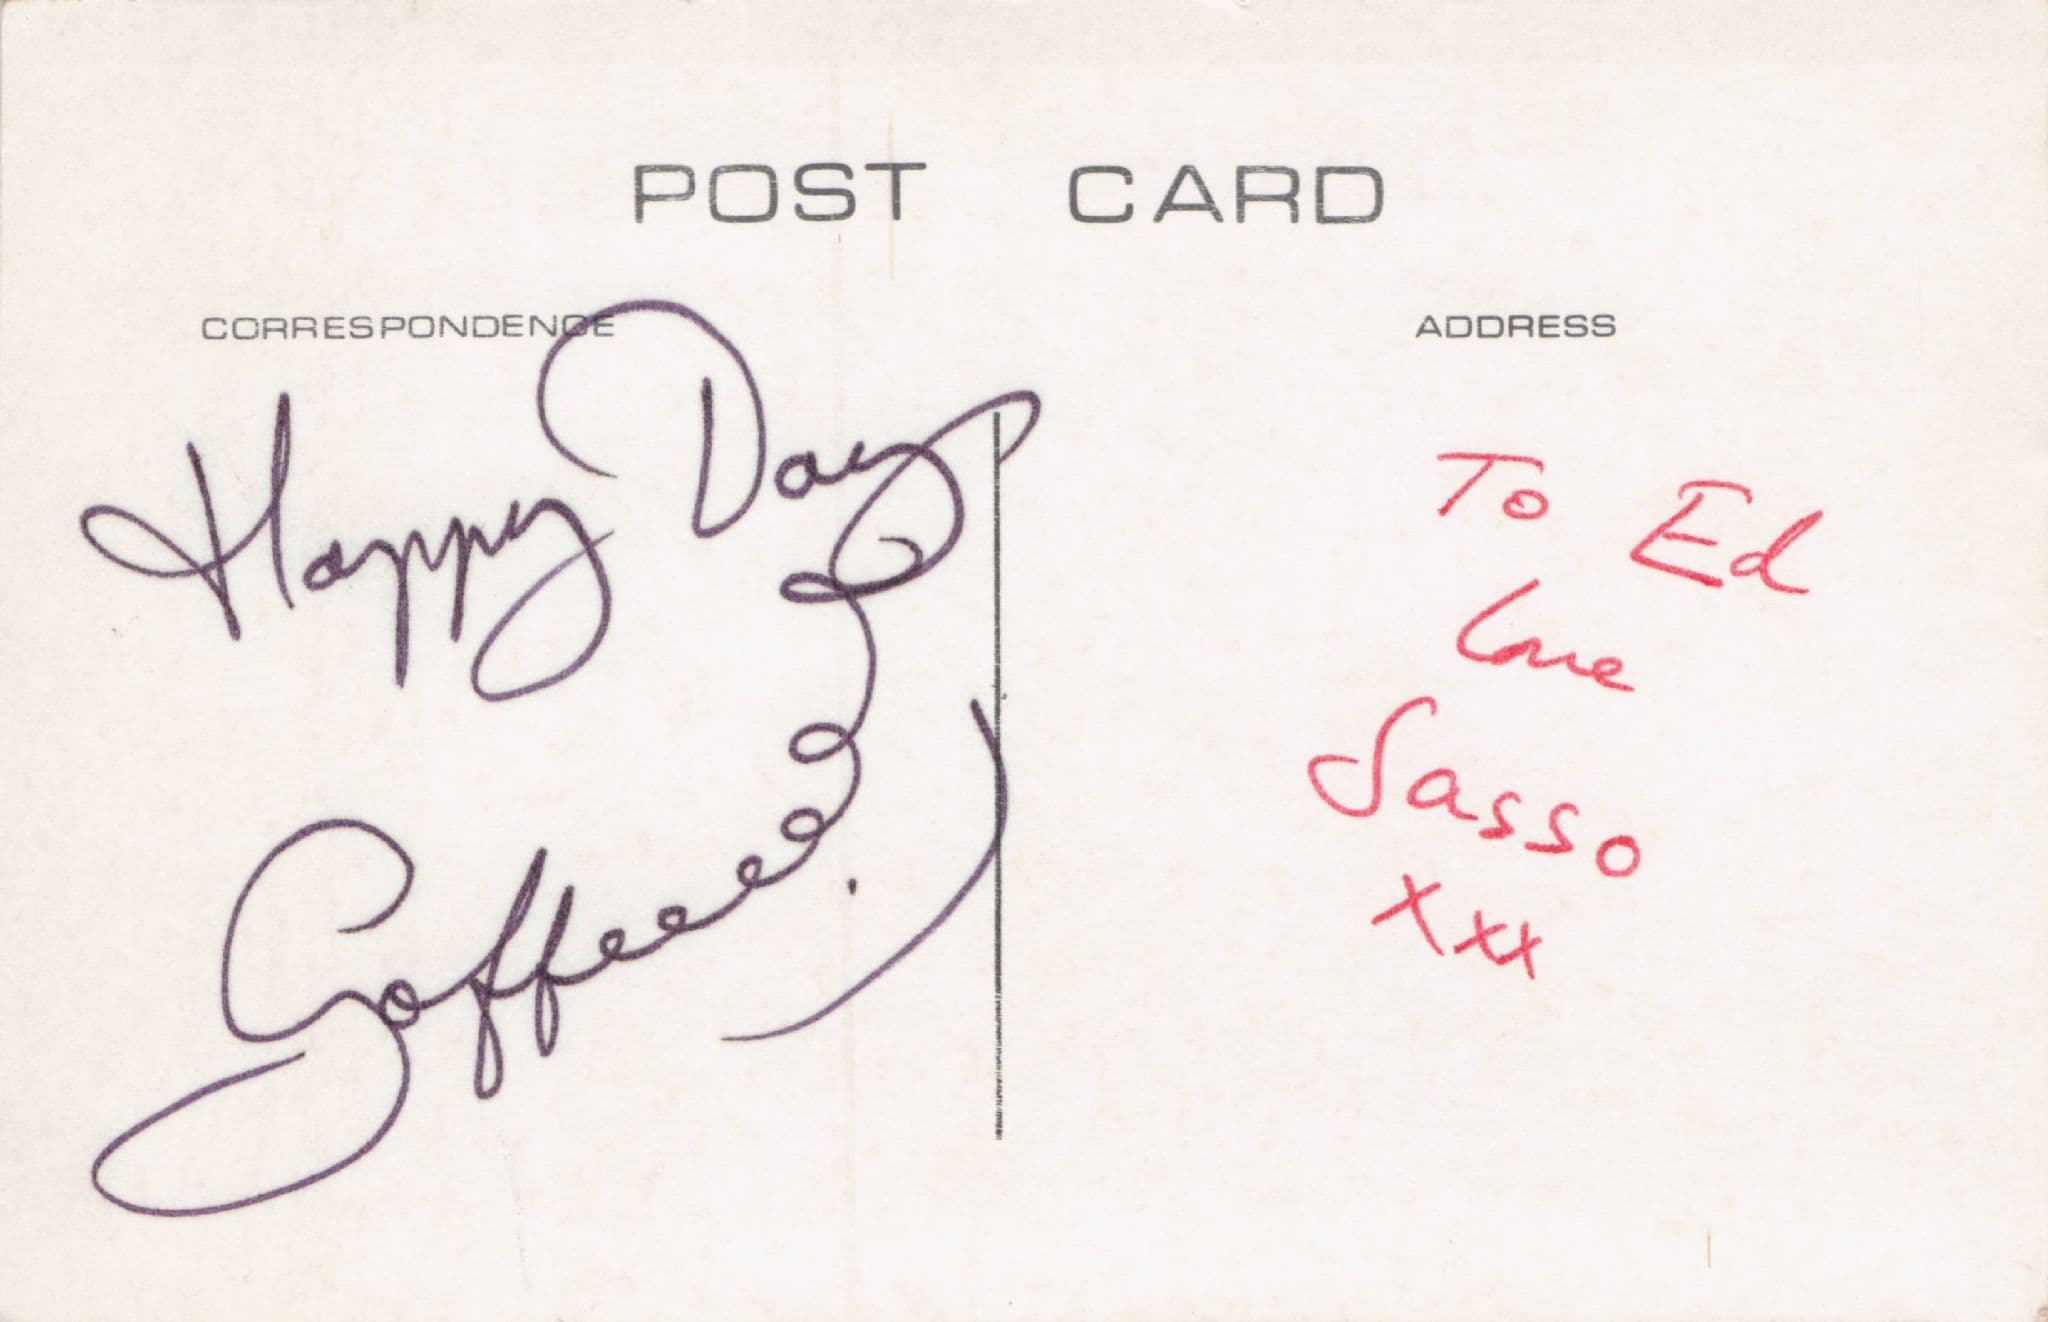 POST CARD
CORRESPONDENCE
Happy Days
ADDRESS
To Ed
Love
Sasso
xxx